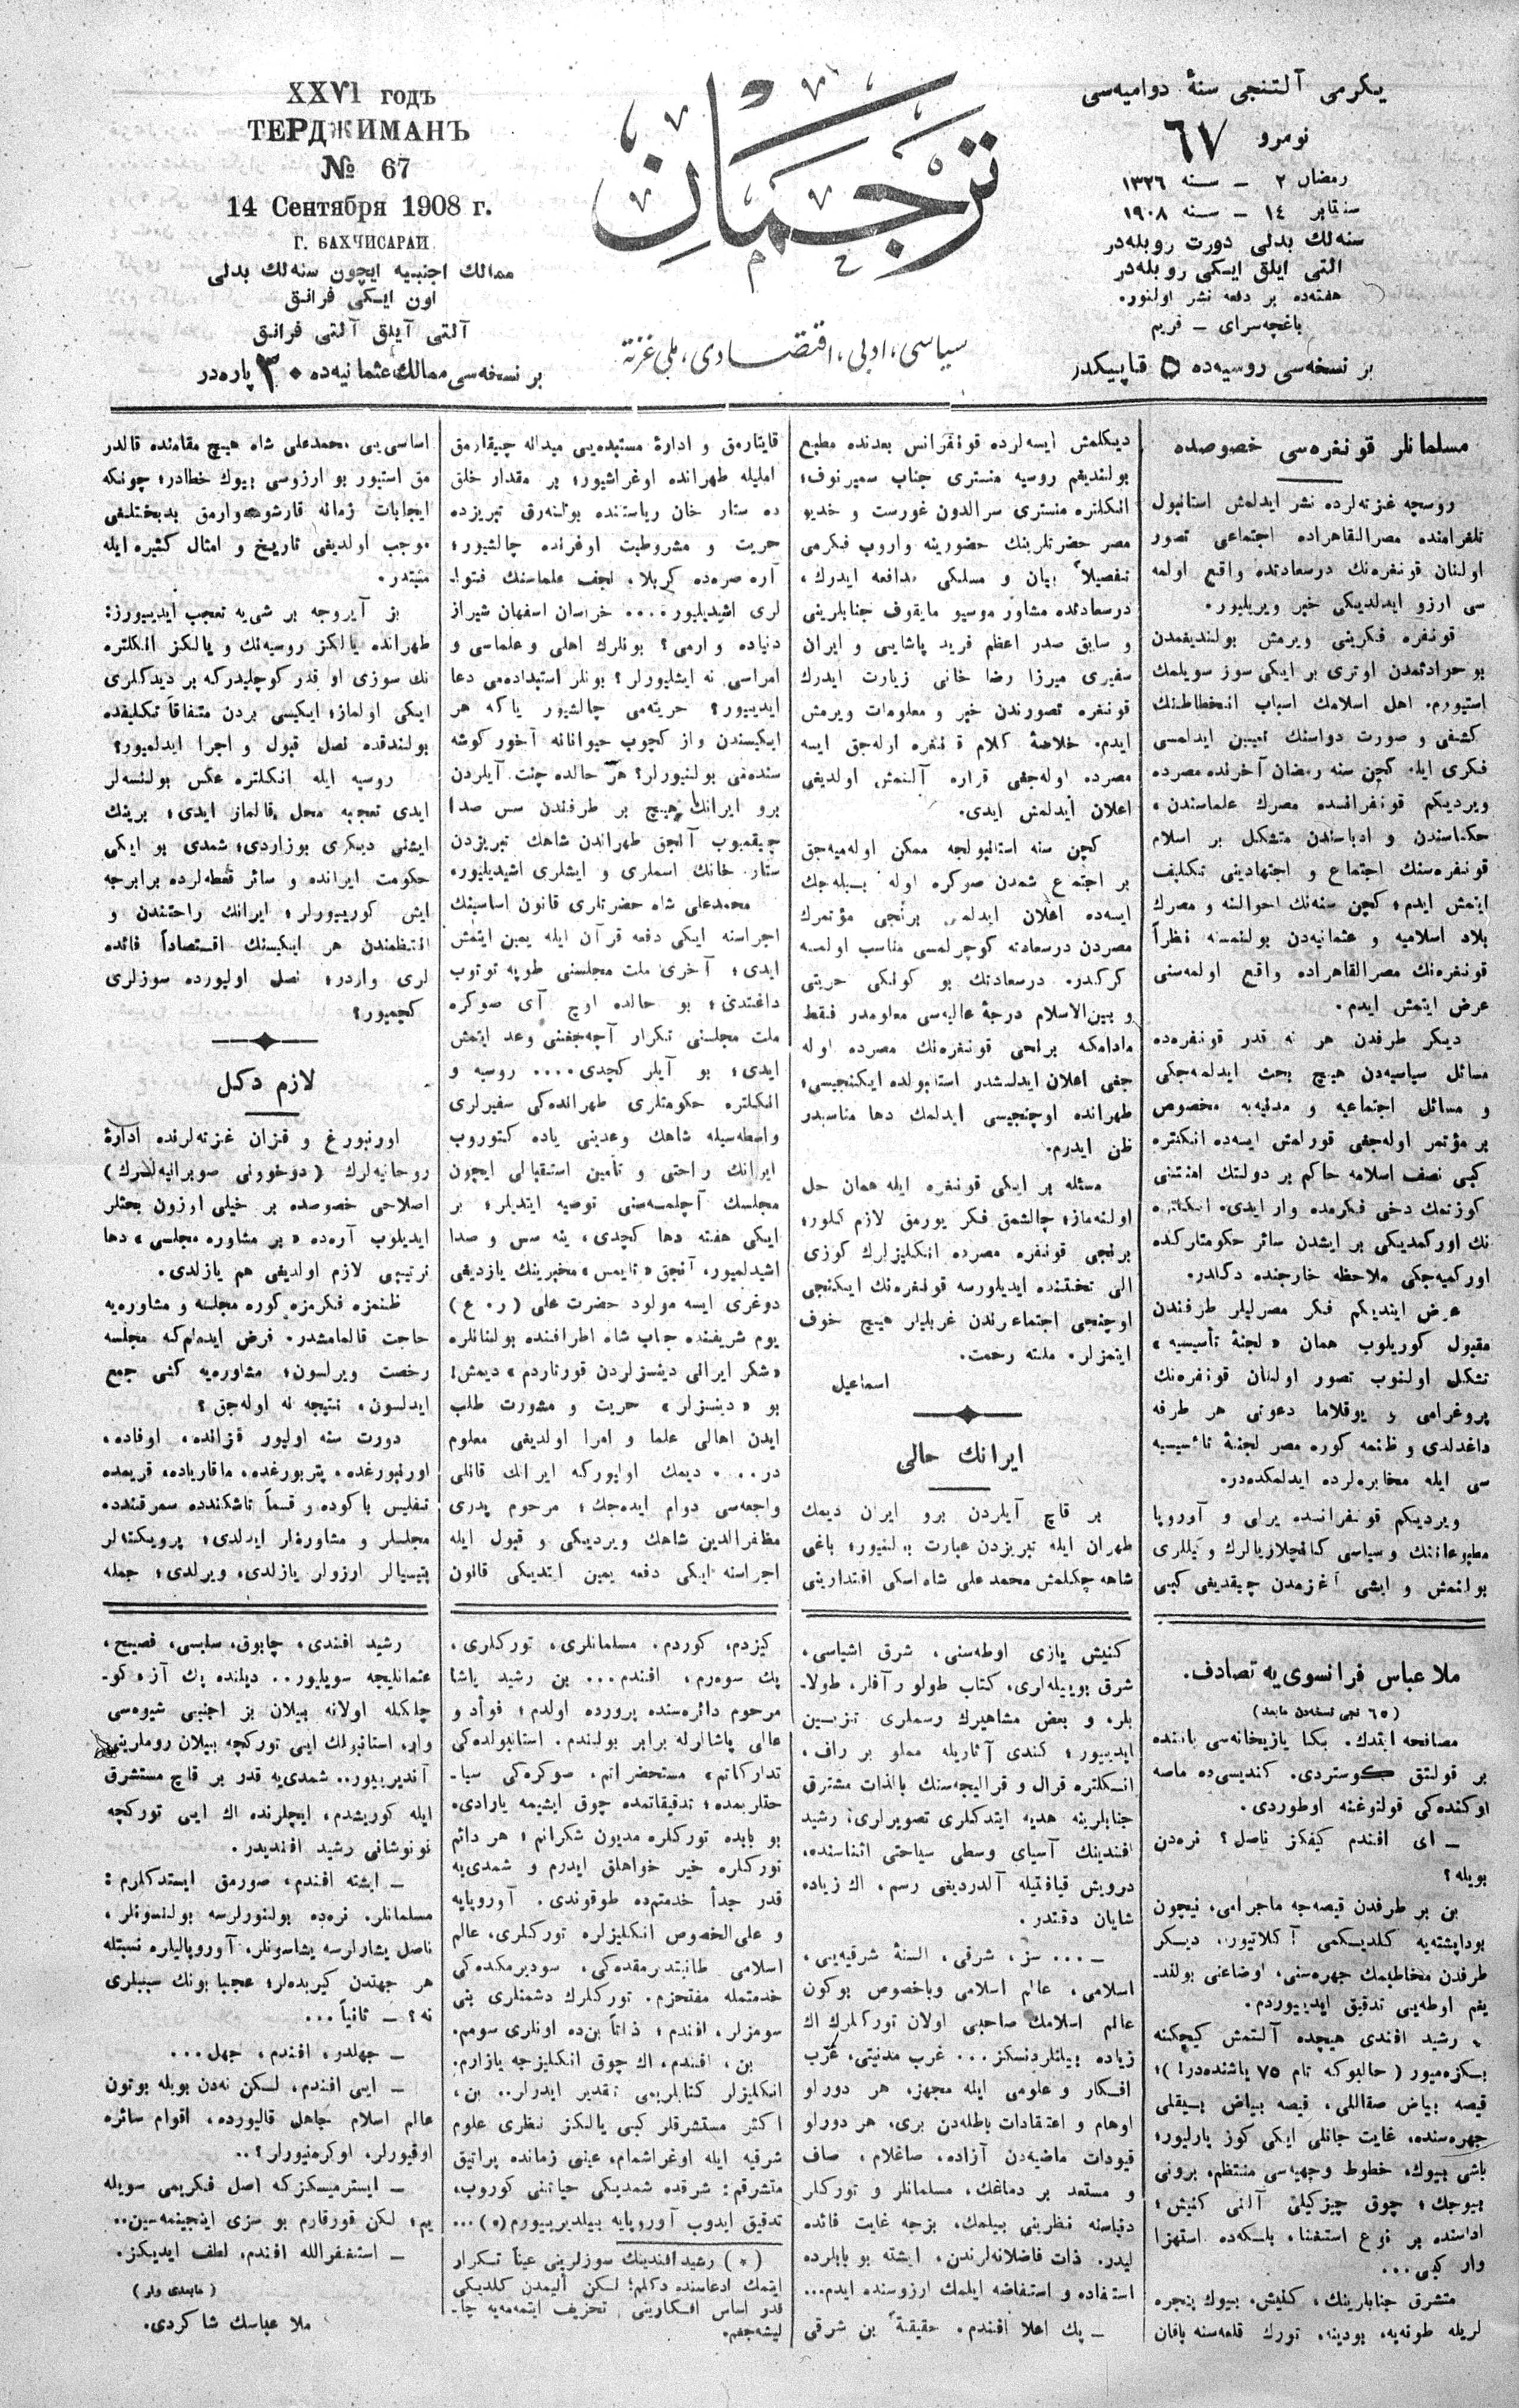 XXVI годъ
ТЕРДЖИМАНЪ
№ 67
14 Сентября 1908 г.
Г. БАХЧИСАРАЙ
ممالك اجنبیه ایچون سنه‌لك بدلی
اون ایكی فرانق
آلتی آیلق آلتی فرانق
بر نسخه‌سی ممالك عثمانیه‌ده ۳۰ پاره‌در
ترجمان
سیاسی، ادبی، اقتصادی، ملی غزته
یكرمی آلتنجی سنهٔ دوامیه‌سی
نومرو ٦٧
رمضان ٢ – سنه ١٣٢٦
سنتابر ١٤ – سنه ١٩٠٨
سنه‌لك بدلی دورت روبله‌در
التی ایلق ایكی روبله‌در
هفته‌ده بر دفعه نشر اولنور.
باغچه‌سرای – قریم
بر نسخه‌سی روسیه‌ده ٥ قاپیكدر
مسلمانلر قونغره‌سی خصوصده
روسچه غزته‌لرده نشر ایدلمش استانبول
تلغرامنده مصرالقاهراده اجتماعی تصور
اولنان قونغره‌نك درسعادتده واقع اولمه
سی ارزو ایدلدیكی خبر ویریلیور.
قونغره فكرینی ویرمش بولندیغمدن
بو حوادثمدن اوتری بر ایكی سوز سویلمك
استیورم. اهل اسلامك اسباب انحطاطنك
كشفی و صورت دواسنك تعیین ایدلمسی
فكری ایله كچن سنه رمضان آخرنده مصرده
ویردیكم قونفرانسده مصرك علماسندن،
حكماسندن و ادباسندن متشكل بر اسلام
قونغره‌سنك اجتماع و اجتهادینی تكلیف
ایتمش ایدم؛ كچن سنه‌نك احوالنه و مصرك
بلاد اسلامیه و عثمانیه‌دن بولنمسنه نظراً
قونغره‌نك مصرالقاهراده واقع اولمه‌سنی
عرض ایتمش ایدم.
دیكر طرفدن هر نه قدر قونغره‌ده
مسائل سیاسیه‌دن هیچ بحث ایدلمه‌جكی
و مسائل اجتماعیه و مدنیه‌یه مخصوص
بر مؤتمر اوله‌جغی قورلمش ایسه‌ده انكلتره
كبی نصف اسلامه حاكم بر دولتك امنیتنی
كوزتمك دخی فكرمده وار ایدی. انكلتره
نك اوركمدیكی بر ایشدن سائر حكومتلركده
اوركمیه‌جكی ملاحظه خارجنده دكلدر.
عرض ایتدیكم فكر مصرلیلر طرفندن
مقبول كوریلوب همان «لجنهٔ تأسیسیه»
تشكل اولنوب تصور اولنان قونغره‌نك
پروغرامی و یوقلاما دعوتی هر طرفه
داغدلدی و ظنمه كوره مصر لجنهٔ تاسیسیه
سی ایله مخابره‌لرده ایدلمكده‌در.
ویردیكم قونفرانسده یرلی و آوروپا
مطبوعاتنك و سیاسی كانچلاریالرك وكیللری
بولنمش و ایشی آغزمدن چیقدیغی كبی
دیكلمش ایسه‌لرده قونفرانس بعدنده مطیع
بولندیغم روسیه منستری جناب سمیرنوف؛
انكلتره منستری سرالدون غورست و خدیو
مصر حضرتلرینك حضورینه واروب فكرمی
تفصیلاً بیان و مسلكی مدافعه ایدرك،
درسعادتده مشاور موسیو مایقوف جنابلرینی
و سابق صدر اعظم فرید پاشایی و ایران
سفیری میرزا رضا خانی زیارت ایدرك
قونغره تصورندن خبر و معلومات ویرمش
ایدم. خلاصهٔ كلام قونغره اوله‌جق ایسه
مصرده اوله‌جغی قراره آلنمش اولدیغی
اعلان ایدلمش ایدی.
كچن سنه استانبولجه ممكن اوله‌میه‌جق
بر اجتماع شمدن صوكره اوله بیله‌جك
ایسه‌ده اعلان ایدلمش برنجی مؤتمرك
مصردن درسعادته كوچرلمسی مناسب اولمسه
كركدر. درسعادتك بو كونكی حریتی
و بین‌الاسلام درجهٔ عالیه‌سی معلومدر فقط
مادامكه برنجی قونغره‌نك مصرده اوله
جغی اعلان ایدلمشدر استانبولده ایكنجیسی؛
طهرانده اوچنجیسی ایدلمك دها مناسبدر
ظن ایدرم.
مسئله بر ایكی قونغره ایله همان حل
اولنه‌ماز؛ چالشمق فكر یورمق لازم كلور؛
برنجی قونغره مصرده انكلیزلرك كوزی
الی تحتنده ایدیلورسه قونغره‌نك ایكنجی
اوچنجی اجتماعلرندن غربلیلر هیچ خوف
ایتمزلر. ملته رحمت.
اسماعیل
ایرانك حالی
بر قاچ آیلردن برو ایران دیمك
طهران ایله تبریزدن عبارت بولنیور؛ باغی
شاهه چكلمش محمد علی شاه اسكی اقتدارینی
قایتارمق و ادارهٔ مستبده‌یی میدانه چیقارمق
املیله طهرانده اوغراشیور؛ بر مقدار خلق
ده ستار خان ریاستنده بولنه‌رق تبریزده
حریت و مشروطیت اوغرنده چالشیور؛
آره صره‌ده كربلا، نجف علماسنك فتوا‌-
لری اشیدیلیور.... خراسان اصفهان شیراز
دنیاده وارمی؟ بونلرك اهلی و علماسی و
امراسی نه ایشلیورلر؟ بونلر استبداده‌می دعا
ایدییور؟ حریته‌می چالشیور یا كه هر
ایكیسندن واز كچوب حیوانانه آخور كوشه
سنده‌می بولنیورلر؟ هر حالده چنت آیلردن
برو ایرانك هیچ بر طرفندن سس صدا
چیقمیوب آنجق طهراندن شاهك تبریزدن
ستار خانك اسملری و ایشلری اشیدیلیور.
محمدعلی شاه حضرتلری قانون اساسینك
اجراسنه ایكی دفعه قرآن ایله یمین ایتمش
ایدی؛ آخری ملت مجلسنی طوپه توتوب
داغتدی؛ بو حالده اوچ آی صوكره
ملت مجلسنی تكرار آچه‌جغنی وعد ایتمش
ایدی؛ بو آیلر كچدی.... روسیه و
انكلتره حكومتلری طهرانده‌كی سفیرلری
واسطه‌سیله شاهك وعدینی یاده كتوروب
ایرانك راحتی و تأمین استقبالی ایچون
مجلسك آچلمسه‌سنی توصیه ایتدیلر؛ بر
ایكی هفته دها كچدی، ینه سس و صدا
اشیدلمیور، آنجق «تایمس» مخبرینك یازدیغی
دوغری ایسه مولود حضرت علی (ر. ع)
یوم شریفنده جناب شاه اطرافنده بولنانلره
«شكر ایرانی دینسزلردن قورتاردم» دیمش!
بو «دینسزلر» حریت و مشورت طلب
ایدن اهالی علما و امرا اولدیغی معلوم
در.... دیمك اولیوركه ایرانك قانلی
واجعه‌سی دوام ایده‌جك؛ مرحوم پدری
مظفرالدین شاهك ویردیكی و قبول ایله
اجراسنه ایكی دفعه یمین ایتدیكی قانون
اساسی‌یی محمدعلی شاه هیچ مقامنده قالدر
مق استیور بو ارزوسی بیوك خطادر؛ چونكه
ایجابات زمانه قارشو وارمق بدبختلغی
موجب اولدیغی تاریخ و امثال كثیره ایله
مثبتدر.
بز آیروجه بر شی‌یه تعجب ایدییورز:
طهرانده یالكز روسیه‌نك و یالكز انكلتره
نك سوزی او قدر كوچلیدركه بر دیدكلری
ایكی اولماز؛ ایكیسی بردن متفاقاً تكلیفده
بولندقده نصل قبول و اجرا ایدلمیور؟
روسیه ایله انكلتره عكس بولنسه‌لر
ایدی تعجبه محل قالماز ایدی؛ برینك
ایشنی دیكری بوزاردی؛ شمدی بو ایكی
حكومت ایرانده و سائر نقطه‌لرده برابرجه
ایش كورییورلر؛ ایرانك راحتندن و
انتظمندن هر ایكیسنك اقتصاداً فائده
لری واردر؛ نصل اولیورده سوزلری
كچمیور؟
لازم دكل
اورنبورغ و قزان غزته‌لرنده ادارهٔ
روحانیه‌لرك (دوخوونی صوبرانیه‌لرك)
اصلاحی خصوصده بر خیلی اوزون بحثلر
ایدیلوب آره‌ده «بر مشاوره مجلسی» دها
ترتیبی لازم اولدیغی هم یازلدی.
ظنمزه فكرمزه كوره مجلسه و مشاوره‌یه
حاجت قالمامشدر. فرض ایده‌لم‌كه مجلسه
رخصت ویرلسون؛ مشاوره‌یه كشی جمع
ایدلسون، نتیجه نه اوله‌جق؟
دورت سنه اولیور قزانده، اوفاده،
اورنبورغده، پتربورغده، ماقاریاده، قریمده
تفلیس باكوده و قسماً تاشكندده سمرقندده
مجلسلر و مشاوره‌لر ایدلدی؛ پرویكته‌لر
پتیسیالر ارزولر یازلدی، ویرلدی؛ جمله
ملا عباس فرانسوی یه تصادف.
(٦٥ نجی نسخه‌دن مابعد)
مصافحه ایتدك. بكا یازیخانه‌سی یاننده
بر قولتق كوستردی. كندیسی‌ده ماصه
اوكنده‌كی قولتوغنه اوطوردی.
– ای افندم كیفكز ناصل؟ نره‌دن
بویله؟
بن بر طرفدن قیصه‌جه ماجرامی، نیچون
بوداپشته‌یه كلدیكمی آكلاتیور، دیكر
طرفدن مخاطبمك چهره‌سنی، اوضاعنی بولند‌-
یغم اوطه‌یی تدقیق ایدییوردم.
رشید افندی هیچده آلتمش كیچكنه
بكزه‌میور (حالبوكه تام ٧٥ یاشنده‌در!)؛
قیصه بیاض صقاللی، قیصه بیاض بیقلی
چهره‌سنده، غایت جانلی ایكی كوز پارلیور؛
باشی بیوك، خطوط وجهیه‌سی منتظم، برونی
بیوجك؛ چوق چیزكیلی آلنی كنیش؛
اداسنده بر نوع استغنا، بلكه‌ده استهزا
وار كبی...
متشرق جنابارینك، كنیش، بیوك پنجره
لریله طونه‌یه، بودینه، تورك قلعه‌سنه باقان
كنیش یازی اوطه‌سنی، شرق اشیاسی،
شرق بوییله‌لری، كتاب طولو رآفلر، طولا‌-
بلر، و بعض مشاهیرك رسملری تزیین
ایدییور؛ كندی آثاریله مملو بر راف،
انكلتره قرال و قرالیچه‌سنك بالذات مشترق
جنابلرینه هدیه ایتدكلری تصویرلری؛ رشید
افندینك آسیای وسطی سیاحتی اثناسنده،
درویش قیافتیله آلدردیغی رسم، اك زیاده
شایان دقتدر.
– ... سز، شرقی، السنهٔ شرقیه‌یی،
اسلامی، عالم اسلامی وباخصوص بوكون
عالم اسلامك صاحبی اولان توركلرك اك
زیاده بیلنلردنسكز... غرب مدنیتی، غرب
افكار و علومی ایله مجهز، هر دورلو
اوهام و اعتقادات باطله‌دن بری، هر دورلو
قیودات ماضیه‌دن آزاده، صاغلام، صاف
و مستعد بر دماغك، مسلمانلر و توركلر
دنیاسنه نظرینی بیلمك، بزجه غایت فائده
لیدر. ذات فاضلانه‌لرندن، ایشته بو بابلرده
استفاده و استفاضه ایلمك ارزوسنده ایدم...
– پك اعلا افندم. حقیقةً بن شرقی
كیزدم، كوردم. مسلمانلری، توركلری،
پك سوه‌رم، افندم... بن رشید پاشا
مرحوم دائره‌سنده پرورده اولدم؛ فوأد و
عالی پاشالرله برابر بولندم. استانبولده‌كی
تداركاتم، مستحضراتم، صوكره‌كی سیا‌-
حتلریمده؛ تدقیقاتمده چوق ایشیمه یارادی.
بو بابده توركلره مدیون شكرانم؛ هر دائم
توركلره خیر خواهلق ایدرم و شمدی‌یه
قدر جداً خدمتم‌ده طوقوندی. آوروپایه
و علی‌الخصوص انكلیزلره توركلری، عالم
اسلامی طانیتدیرمقده‌كی، سودیرمكده‌كی
خدمتمله مفتخرم. توركلرك دشمنلری بنی
سومزلر، افندم؛ ذاتاً بن‌ده اونلری سومم.
بن، افندم، اك چوق انكلیزجه یازارم.
انكلیزلر كتابلریمی تقدیر ایدرلر.. بن،
اكثر مستشرقلر كبی یالكز نظری علوم
شرقیه ایله اوغراشمام، عینی زمانده پراتیق
متشرقم: شرقده شمدیكی حیاتنی كوروب،
تدقیق ایدوب آوروپایه بیلدیرییورم (*)...
(*) رشید افندینك سوزلرینی عیناً تكرار
ایتمك ادعاسنده دكلم؛ لكن آلیمدن كلدیكی
قدر اساس افكارینی تحریف ایتمه‌مه‌یه چا‌-
لیشه‌جغم.
رشید افندی، چابوق، سلیس، فصیح،
عثمانلیجه سویلیور.. دیلنده پك آز، كو‌-
چلكله اولانه بیلان بر اجنبی شیوه‌سی
وار، استانبولك ایی توركچه بیلان روملرینی
آندیرییور.. شمدی‌یه قدر بر قاچ مستشرق
ایله كوریشدم، ایچلرنده اك ایی توركچه
قونوشانی رشید افندیدر.
– ایشته افندم، صورمق ایستدكلرم:
مسلمانلر، نره‌ده بولنورلرسه بولنسونلر،
ناصل یشارلرسه یشاسونلر، آوروپالیلره نسبتله
هر جهتدن كیریده‌لر؛ عجبا بونك سببلری
نه؟ – ثانیاً...
– جهلدر، افندم، جهل...
– ایی افندم، لكن نه‌دن بویله بوتون
عالم اسلام جاهل قالیورده، اقوام سائره
اوقیورلر، اوكره‌نیورلر؟..
– ایسترمیسكزكه اصل فكریمی سویله
یم؛ لكن قورقارم بو سزی اینجینمه‌سین..
– استغفرالله افندم، لطف ایدیكز.
(مابعدی وار)
ملا عباسك شاكردی.